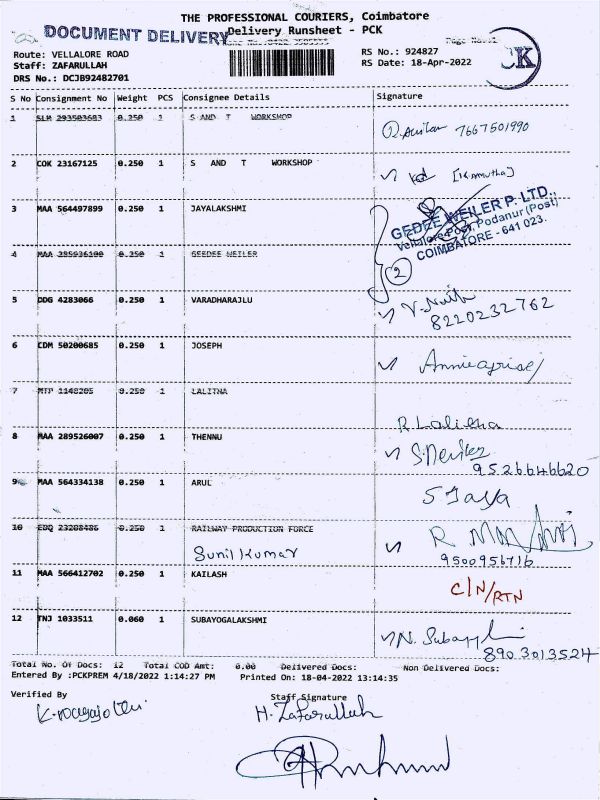 THE PROFESSIONAL COURIERS, Coimbatore
DOCUMENT DELIVERY
Delivery Runsheet - PCK
Route: VELLALORE ROAD
RS No.: 924827
CK
Staff: ZAFARULLAH
RS Date: 18-Apr-2022
DRS No.: DCJB92482701
S No Consignment No Weight PCS Consignee Details Signature
1 SLM 293503683 0.250 1 S AND T WORKSHOP
7667501990
2 COK 23167125 0.250 1 S AND T WORKSHOP
[K.Amutha]
3 MAA 564497899 0.250 1 JAYALAKSHMI
GEDEE WEILER P. LTD.,
Vellalore Post, Podanur (Post)
COIMBATORE - 641 023.
4 MAA 285936100 0.250 1 GEEDEE WEILER
2
5 DDG 4283066 0.250 1 VARADHARAJLU
8220232762
6 CDM 50200685 0.250 1 JOSEPH
7 MTP 1148205 0.250 1 LALITHA
R Lalitha
8 MAA 289526007 0.250 1 THENNU
9526646620
9 MAA 564334138 0.250 1 ARUL
S Jaya
10 EDQ 23208486 0.250 1 RAILWAY PRODUCTION FORCE
Sunil Kumar
9500956716
11 MAA 566412702 0.250 1 KAILASH
C/N/RTN
12 TNJ 1033511 0.060 1 SUBAYOGALAKSHMI
8903013524
Total No. Of Docs: 12 Total COD Amt: 0.00 Delivered Docs: Non Delivered Docs:
Entered By :PCKPREM 4/18/2022 1:14:27 PM Printed On: 18-04-2022 13:14:35
Verified By
Staff Signature
H. Zafarullah